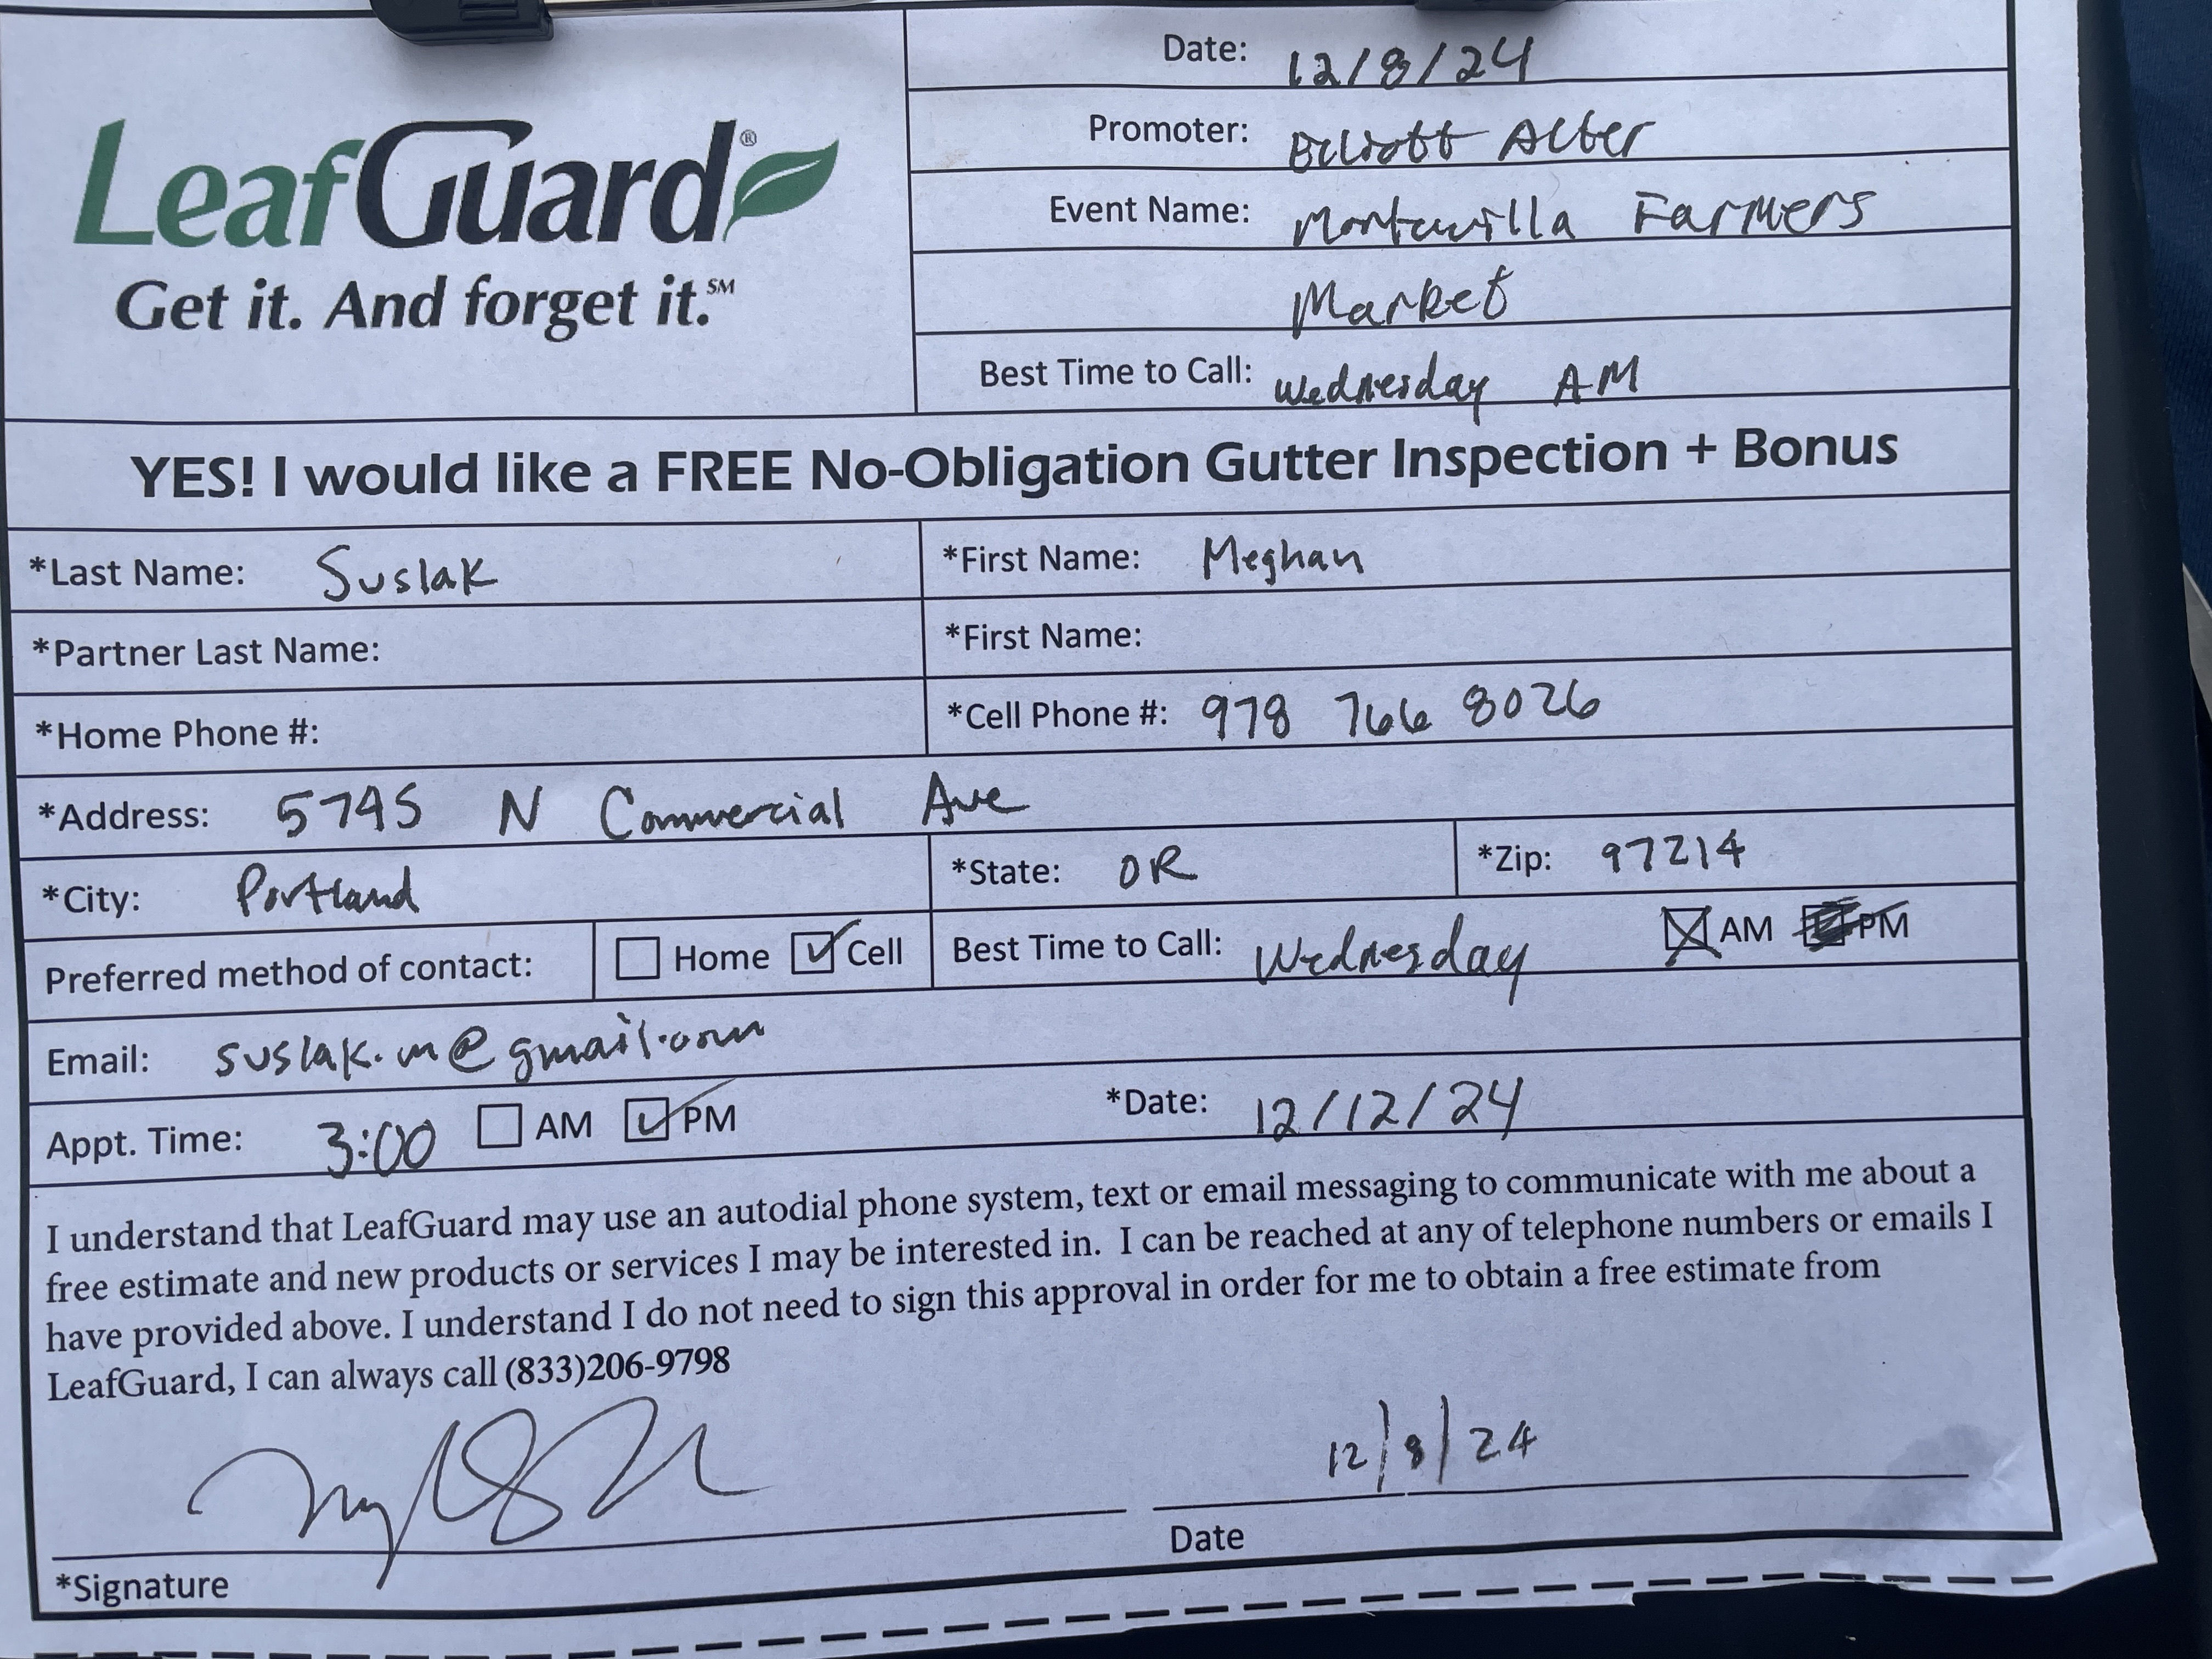 LeafGuard®
Get it. And forget it.℠
Date: 12/8/24
Promoter:
Event Name: Montavilla Farmers
Market
Best Time to Call: Wednesday AM
YES! I would like a FREE No-Obligation Gutter Inspection + Bonus
*Last Name: Suslak *First Name: Meghan
*Partner Last Name: *First Name:
*Home Phone #: *Cell Phone #: 978 766 8026
*Address: 5745 N Commercial Ave
*City: Portland *State: OR *Zip: 97214
Preferred method of contact: Home Cell Best Time to Call: Wednesday AM PM
Email: suslak.m@gmail.com
Appt. Time: 3:00 AM PM *Date: 12/12/24
I understand that LeafGuard may use an autodial phone system, text or email messaging to communicate with me about a
free estimate and new products or services I may be interested in. I can be reached at any of telephone numbers or emails I
have provided above. I understand I do not need to sign this approval in order for me to obtain a free estimate from
LeafGuard, I can always call (833)206-9798
12/8/24
*Signature Date